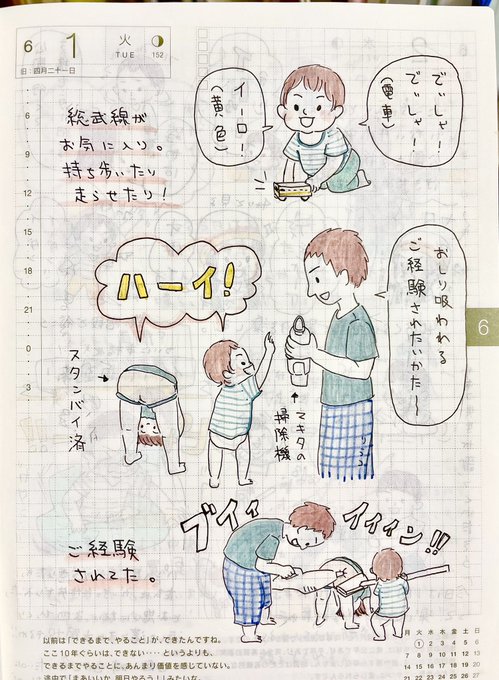 6
1
火
TUE
152
旧:四月二十一日
6
9
12
15
18
21
0
3
総武線が
お気に入り。
持ち歩いたり
走らせたり!
でぃしゃ!
でぃしゃ!
(電車)
イーロー!
(黄色)
ハーイ!
おしり吸われる
ご経験されたいかた〜
スタンバイ済
マキタの
掃除機
ブイィ
イィィン!!
ご経験
されてた。
6
以前は「できるまで、やること」が、できたんですね。
ここ10年ぐらいは、できない‥‥というよりも、
できるまでやることに、あんまり価値を感じていない。
途中で「まあいいか、明日やろう!」みたいな。
月 火 水 木 金 土 日
1 2 3 4 5 6
7 8 9 10 11 12 13
14 15 16 17 18 19 20
21 22 23 24 25 26 27